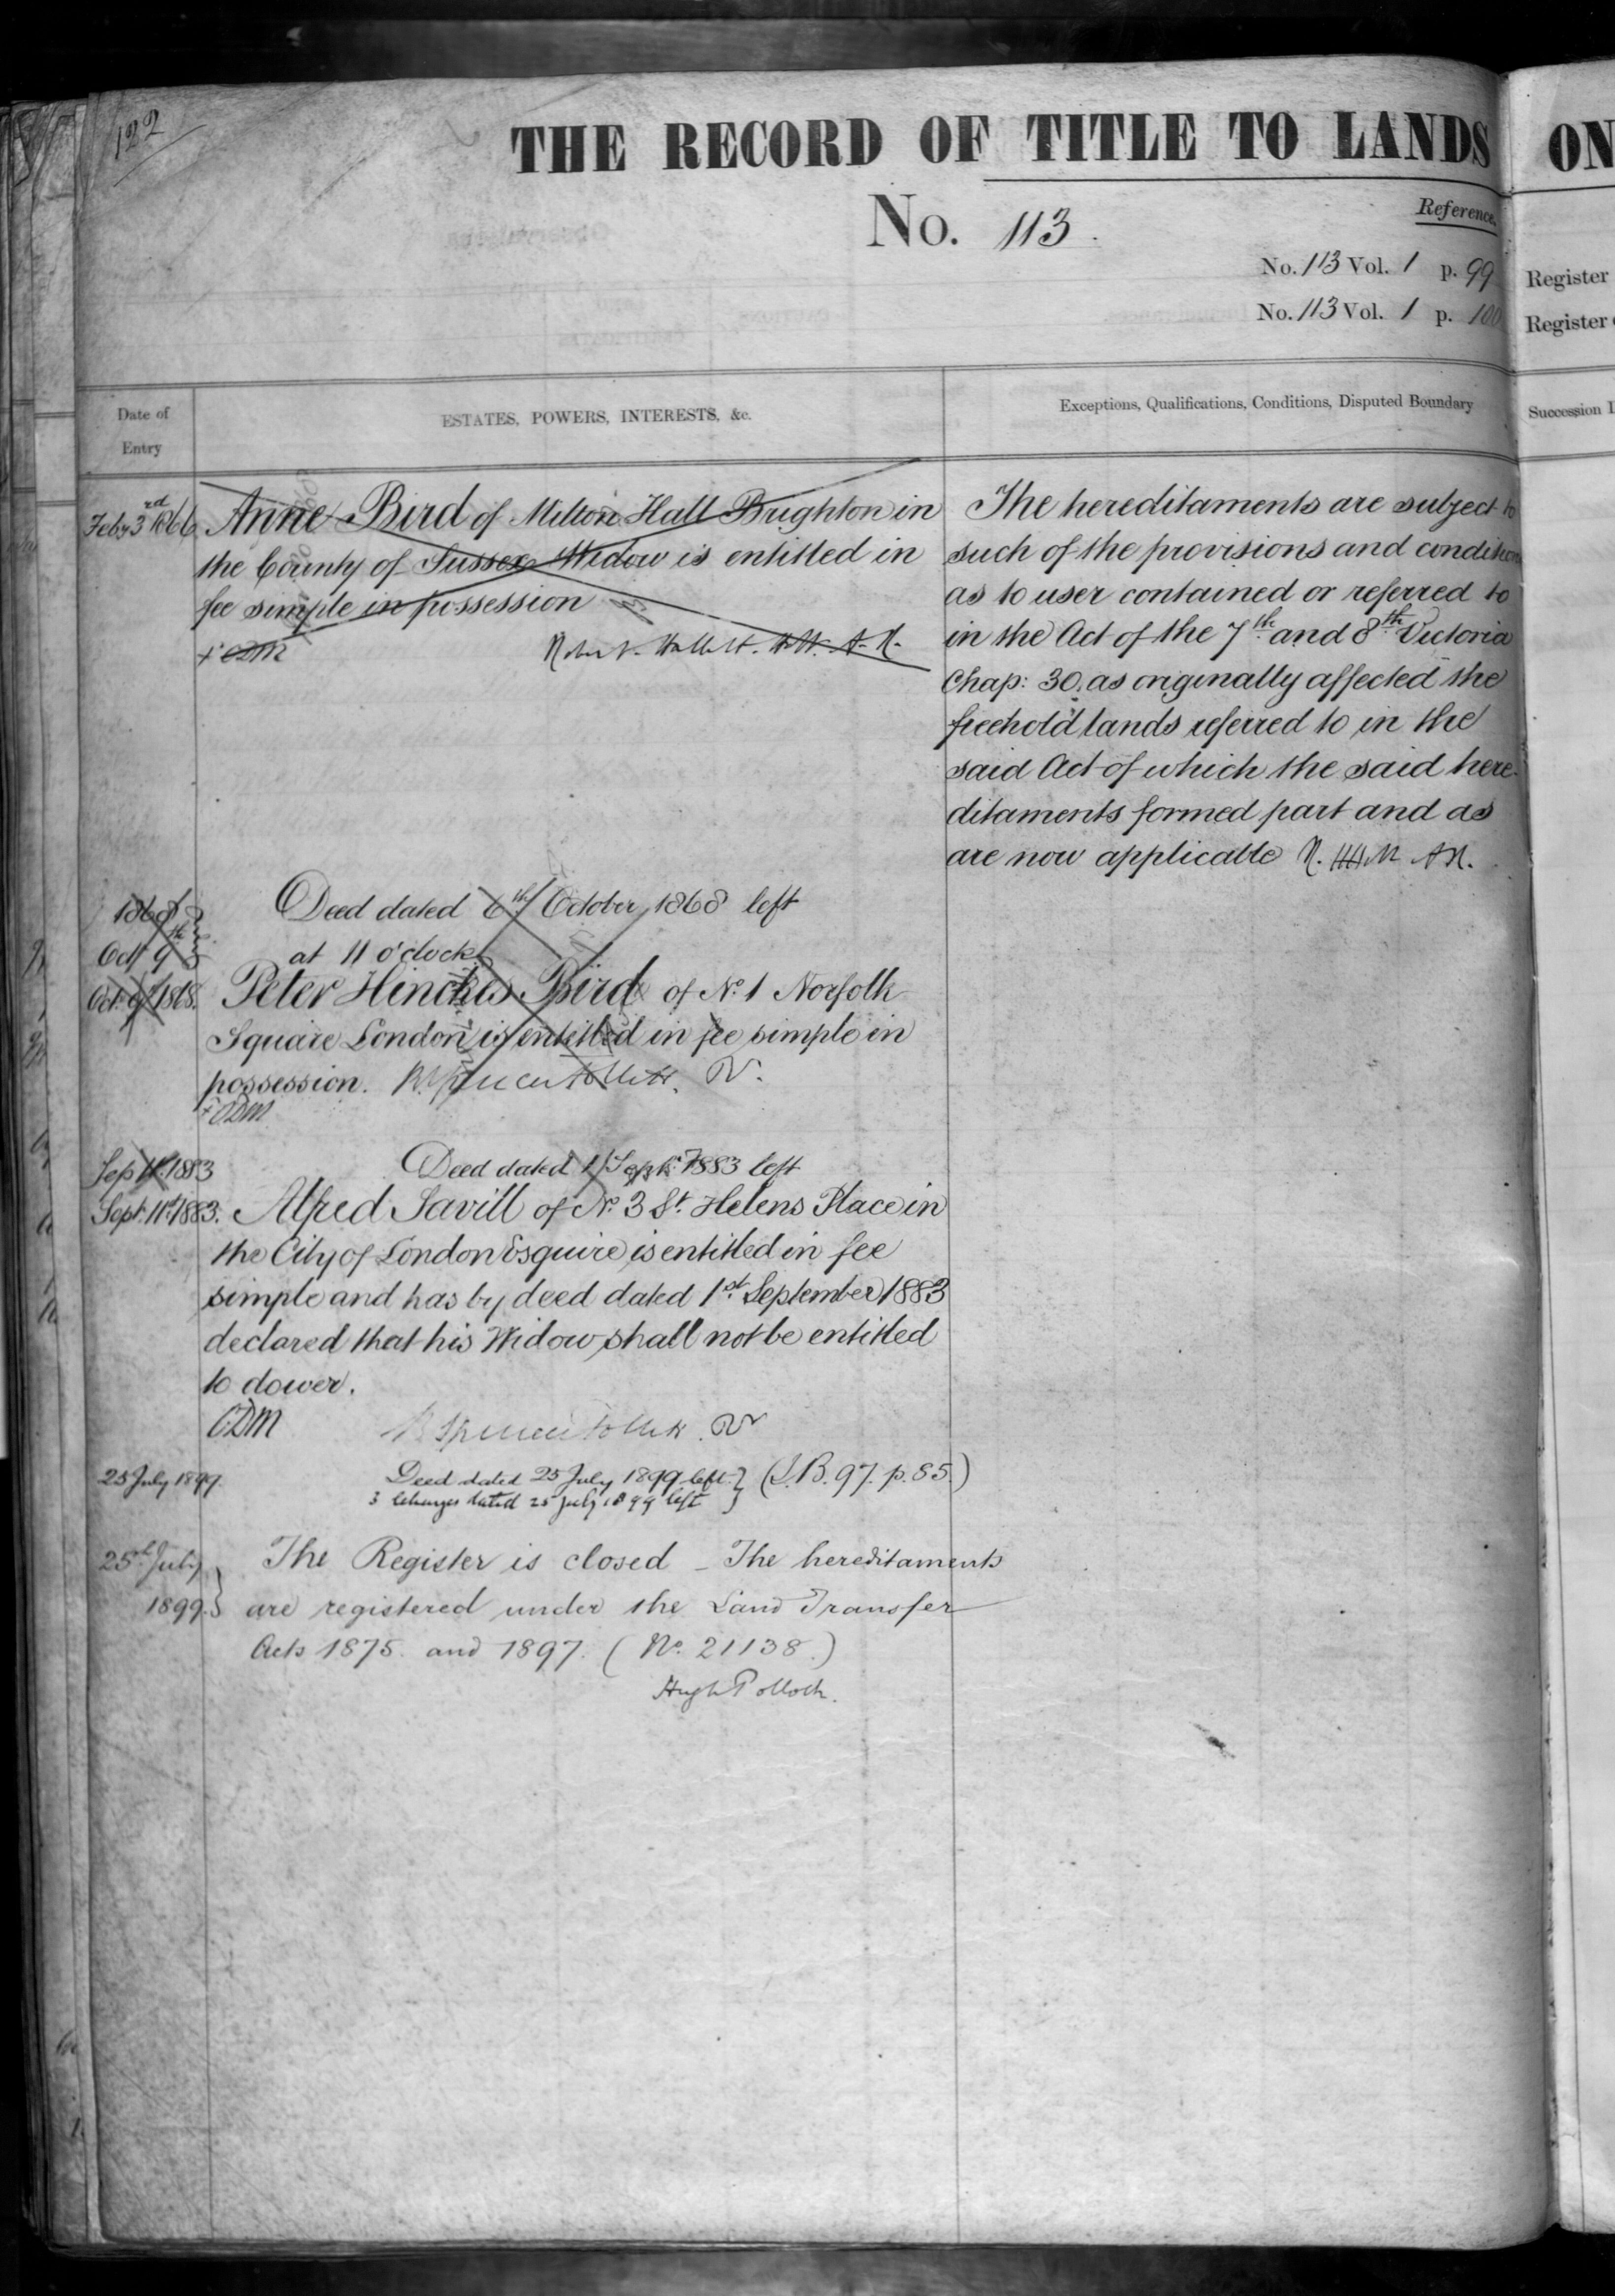 122
THE RECORD OF TITLE TO LANDS
No. 113.
Reference.
No. 113 Vol. 1 p. 99
No. 113 Vol. 1 p. 100
Date of Entry
ESTATES, POWERS, INTERESTS, &c.
Exceptions, Qualifications, Conditions, Disputed Boundary
Feby 3rd 1866
Anne Bird of Milton Hall Brighton in
the County of Sussex Widow is entitled in
fee simple in possession
+ CDM
The hereditaments are subject to
such of the provisions and conditions
as to user contained or referred to
in the Act of the 7th and 8th Victoria
Chap: 30. as originally affected the
freehold lands referred to in the
said Act of which the said here-
ditaments formed part and as
are now applicable
1868
Oct 9th
Deed dated 6th October 1868 left
at 11 o'clock
Oct. 9th 1868.
Peter Hinckes Bird of No. 1 Norfolk
Square London is entitled in fee simple in
possession.
+ CDM
Sep 11th 1883
Deed dated 1 Sept. 1883 left
Sept. 11th 1883.
Alfred Savill of No. 3 St. Helens Place in
the City of London Esquire is entitled in fee
simple and has by deed dated 1st September 1883
declared that his Widow shall not be entitled
to dower.
CDM
25 July 1899.
Deed dated 25 July 1899 left } (I.B. 97. p. 85.)
3 Charges dated 25 July 1899 left }
25th July 1899. }
The Register is closed _ The hereditaments
are registered under the Land Transfer
Acts 1875. and 1897. (No. 21138.)
Hugh Pollock.
ON
Register
Register
Succession